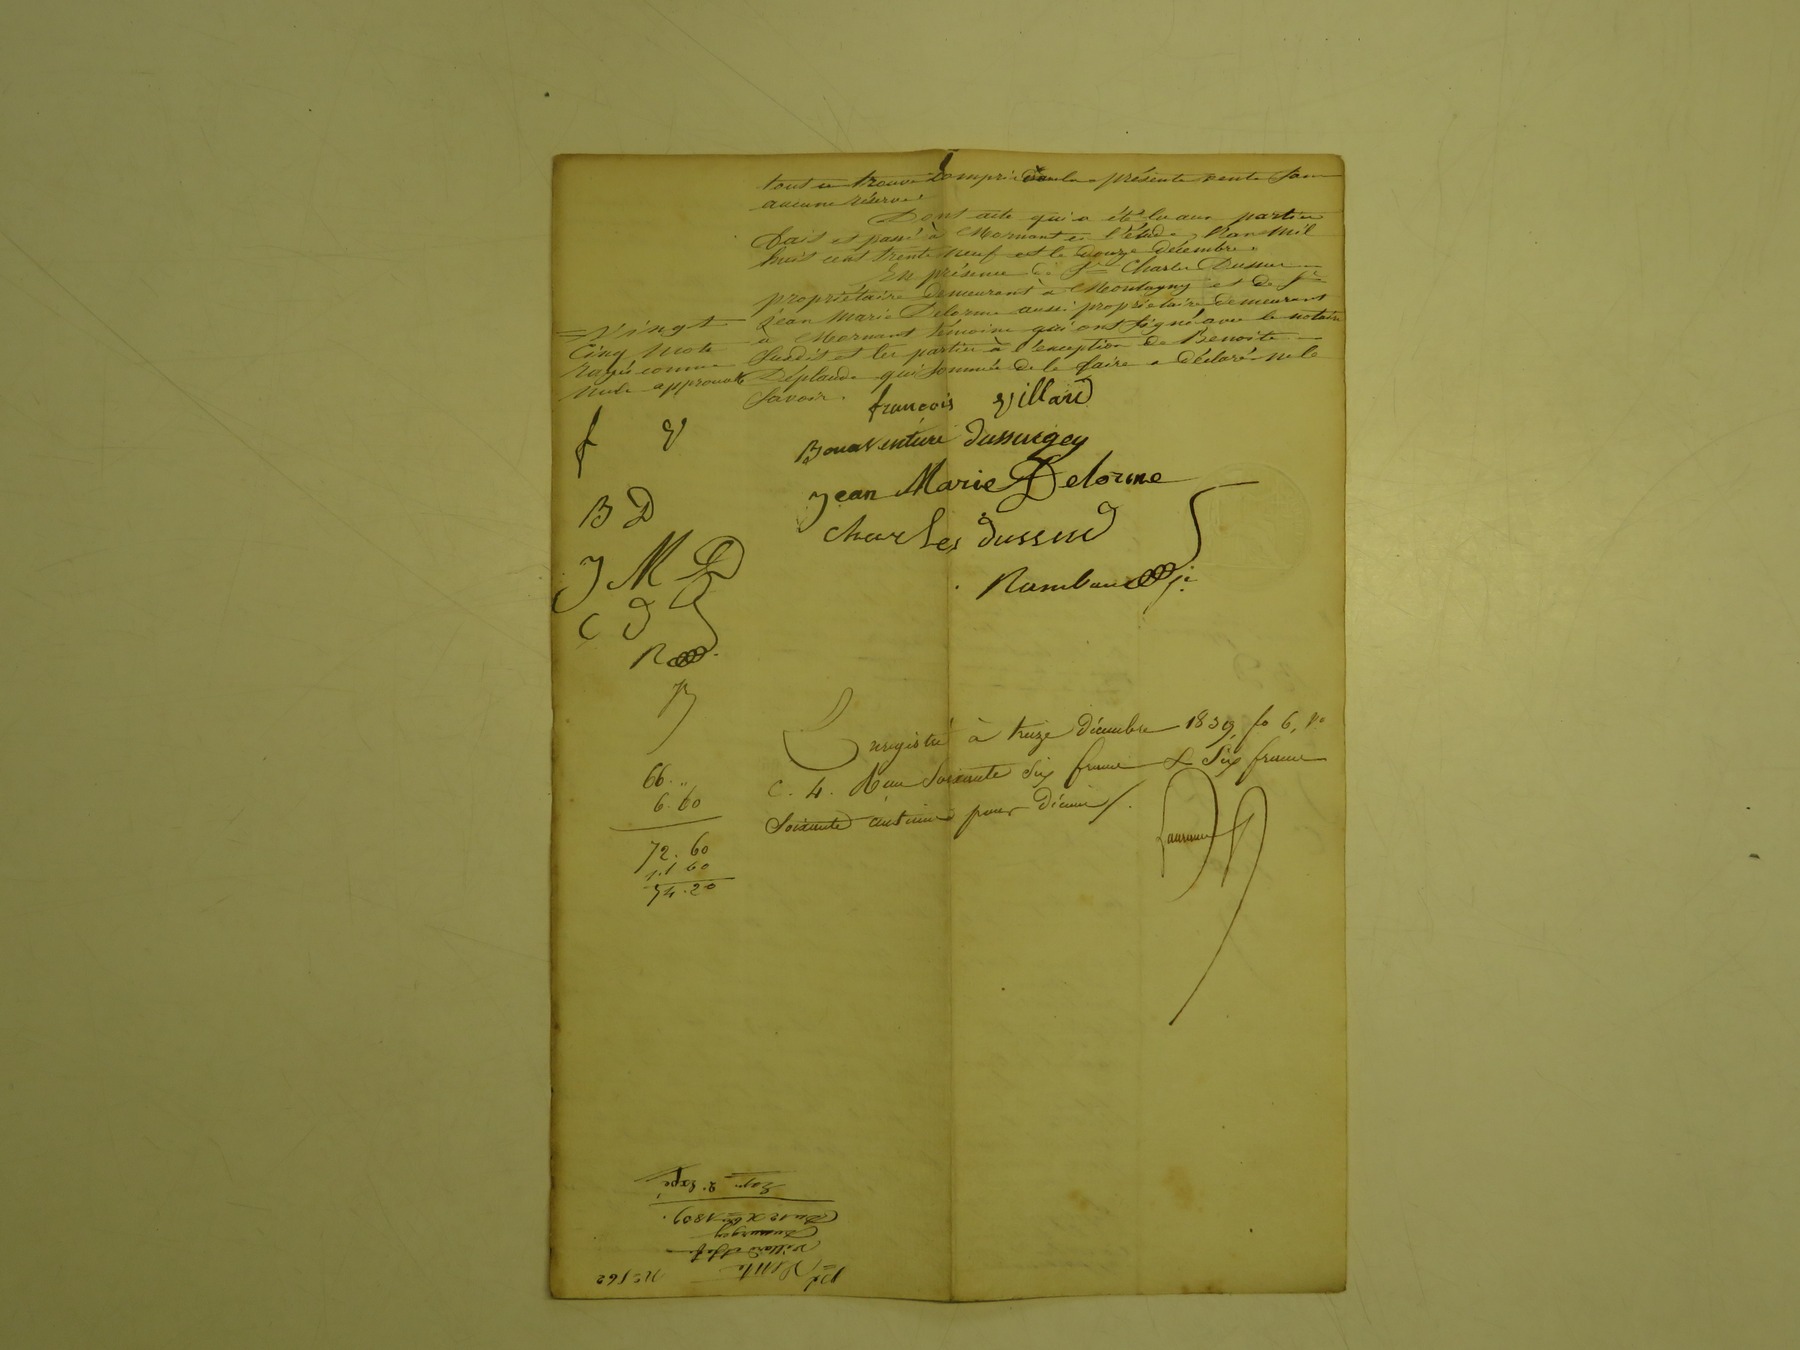 tout se trouve compris dans la présente vente sans
aucune réserve.
Dont acte qui a été lu aux parties
fait et passé à Mornant en l'étude, l'an mil
huit cent trente neuf et le douze décembre.
En présence de Sr Charles Dussud
propriétaire demeurant à Montagny et de Sr
Jean Marie Delorme aussi propriétaire demeurant
à Mornant témoins qui ont signé avec le notaire
susdit et les parties à l'exception de Benoite
Déplaude qui sommée de le faire a déclaré ne le
savoir.
= Vingt
Cinq mots
rayés comme
nuls approuvés
françois Villard
Bonaventure Dussurgey
Jean Marie Delorme
Charles Dussud
Rambaud
f V
B D
J M D
C D
R
Enregistré à treize décembre 1839, fo 6, Ro
C. 4. Reçu soixante six francs & six francs
soixante centimes pour décime
66. "
6. 60
72. 60
1. 60
74. 20
No 562
Vente
Villard
Dussurgey
Du 12 Xbre 1839.